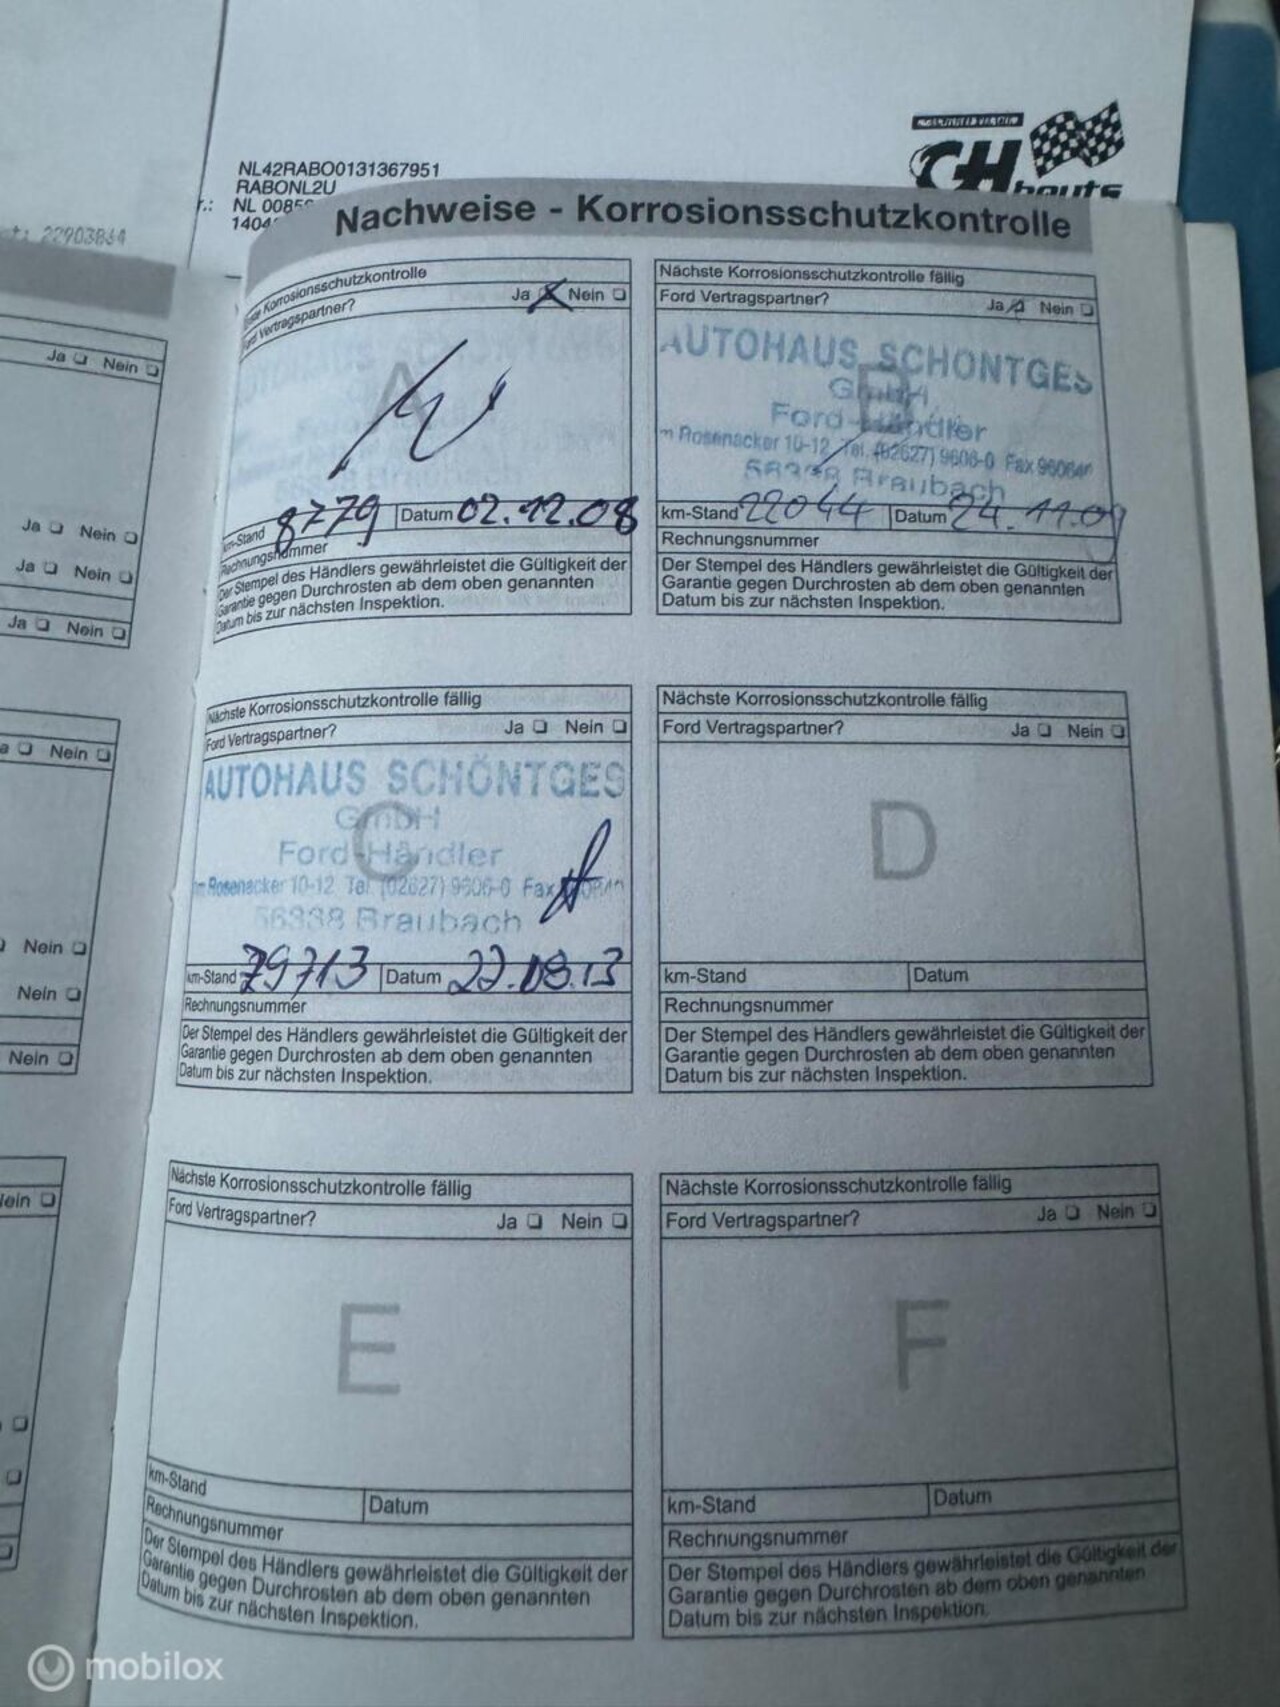 NL42RABO0131367951
RABONL2U
NL 0085
1404
22903864
GH
bouts
Nachweise - Korrosionsschutzkontrolle
Korrosionsschutzkontrolle
Ford Vertragspartner? Ja Nein
A
8779 Datum 02.12.08
km-Stand
Rechnungsnummer
Der Stempel des Händlers gewährleistet die Gültigkeit der
Garantie gegen Durchrosten ab dem oben genannten
Datum bis zur nächsten Inspektion.
Nächste Korrosionsschutzkontrolle fällig
Ford Vertragspartner? Ja Nein
AUTOHAUS SCHÖNTGES
GmbH
Ford-Händler
m Rosenacker 10-12 Tel. (02627) 9606-0 Fax
56338 Braubach
km-Stand 22044 Datum 24.11.09
Rechnungsnummer
Der Stempel des Händlers gewährleistet die Gültigkeit der
Garantie gegen Durchrosten ab dem oben genannten
Datum bis zur nächsten Inspektion.
Nächste Korrosionsschutzkontrolle fällig
Ford Vertragspartner? Ja Nein
AUTOHAUS SCHÖNTGES
GmbH
C
Ford-Händler
m Rosenacker 10-12 Tel. (02627) 9606-0 Fax
56338 Braubach
km-Stand 79713 Datum 22.08.13
Rechnungsnummer
Der Stempel des Händlers gewährleistet die Gültigkeit der
Garantie gegen Durchrosten ab dem oben genannten
Datum bis zur nächsten Inspektion.
Nächste Korrosionsschutzkontrolle fällig
Ford Vertragspartner? Ja Nein
D
km-Stand Datum
Rechnungsnummer
Der Stempel des Händlers gewährleistet die Gültigkeit der
Garantie gegen Durchrosten ab dem oben genannten
Datum bis zur nächsten Inspektion.
Nächste Korrosionsschutzkontrolle fällig
Ford Vertragspartner? Ja Nein
E
km-Stand Datum
Rechnungsnummer
Der Stempel des Händlers gewährleistet die Gültigkeit der
Garantie gegen Durchrosten ab dem oben genannten
Datum bis zur nächsten Inspektion.
Nächste Korrosionsschutzkontrolle fällig
Ford Vertragspartner? Ja Nein
F
km-Stand Datum
Rechnungsnummer
Der Stempel des Händlers gewährleistet die Gültigkeit der
Garantie gegen Durchrosten ab dem oben genannten
Datum bis zur nächsten Inspektion.
Ja Nein
Ja Nein
Ja Nein
Ja Nein
Nein
Nein
Nein
Nein
Nein
mobilox